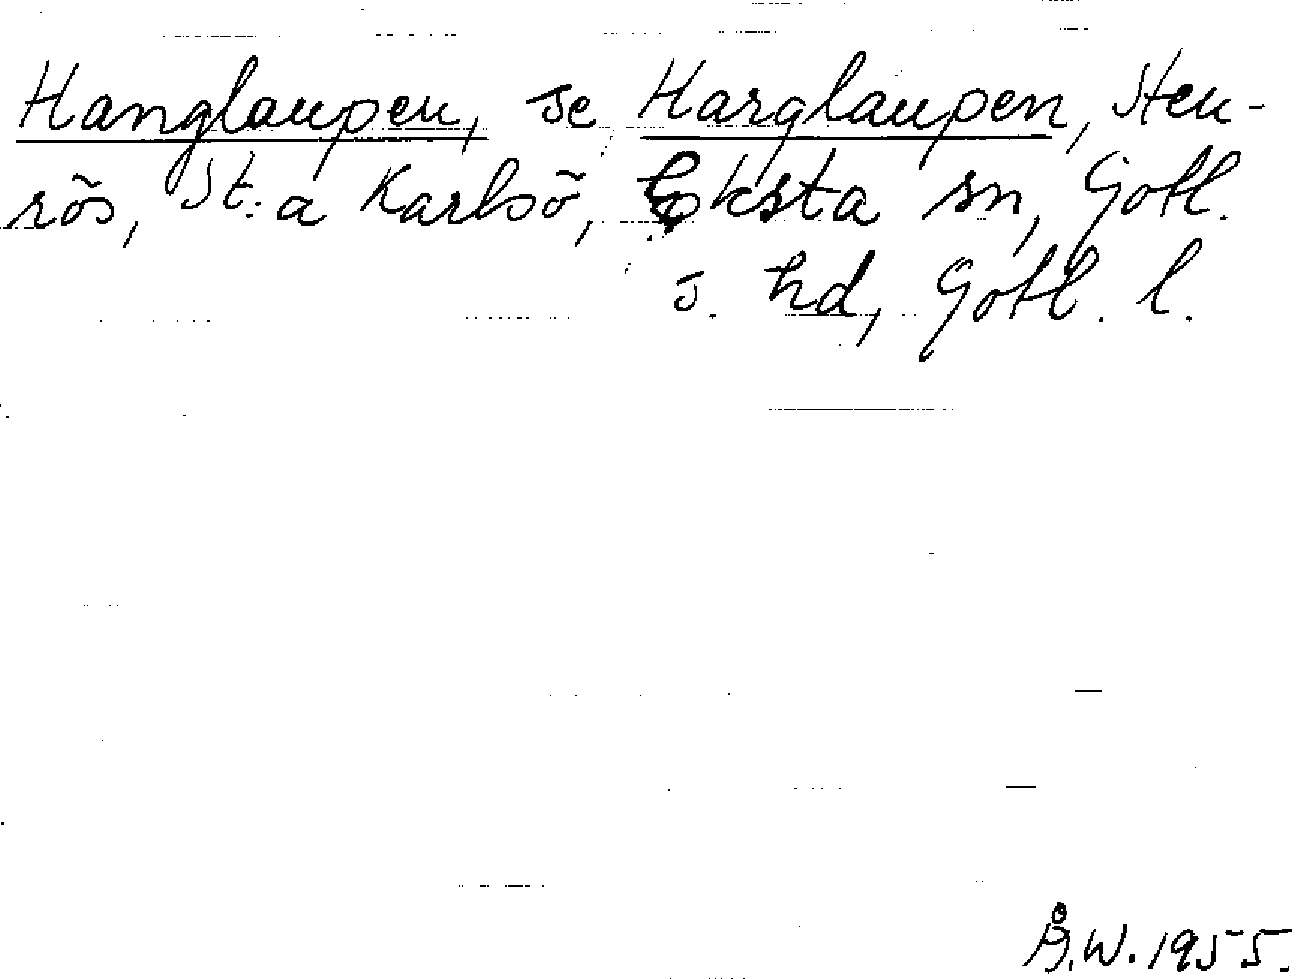 Hanglaupen, se Harglaupen, Sten-
rös, St:a Karlsö, Eksta sn, Gotl.
s. hd, Gotl. l.
Å.W. 1955.